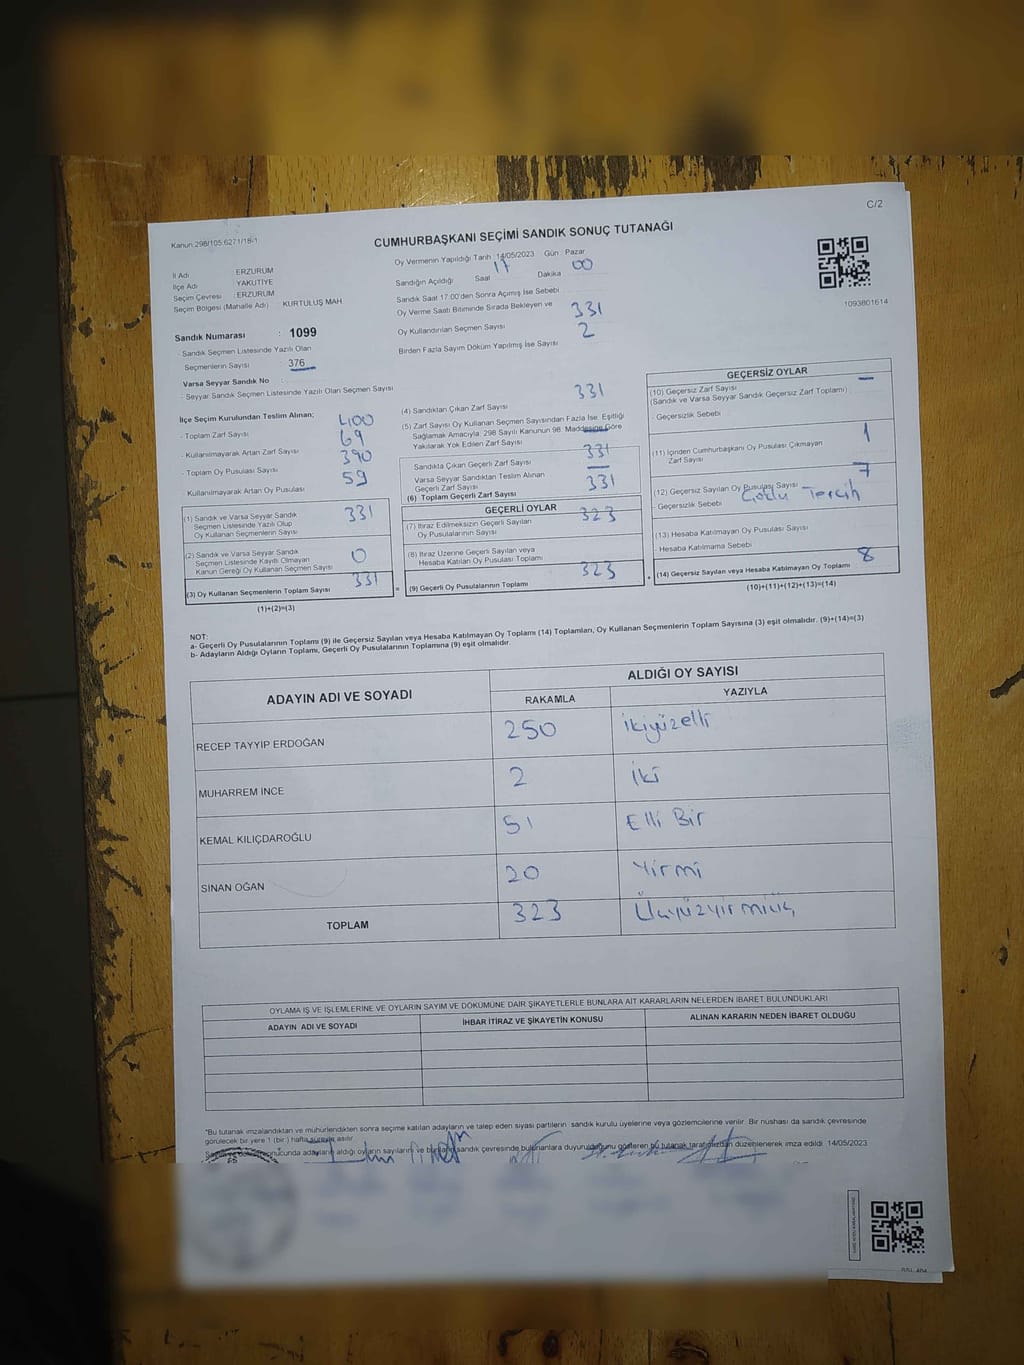 C/2
Kanun:298/105.6271/18-1
CUMHURBAŞKANI SEÇİMİ SANDIK SONUÇ TUTANAĞI
İl Adı : ERZURUM
İlçe Adı : YAKUTİYE
Seçim Çevresi : ERZURUM
Seçim Bölgesi (Mahalle Adı) : KURTULUŞ MAH
Sandık Numarası : 1099
Sandık Seçmen Listesinde Yazılı Olan
Seçmenlerin Sayısı : 376
Varsa Seyyar Sandık No :
- Seyyar Sandık Seçmen Listesinde Yazılı Olan Seçmen Sayısı
Oy Vermenin Yapıldığı Tarih : 14/05/2023 Gün : Pazar
Sandığın Açıldığı Saat 17 Dakika 00
Sandık Saat 17:00'den Sonra Açımış İse Sebebi
Oy Verme Saati Bitiminde Sırada Bekleyen ve
Oy Kullandırılan Seçmen Sayısı 331
Birden Fazla Sayım Döküm Yapılmış İse Sayısı 2
1093801614
İlçe Seçim Kurulundan Teslim Alınan;
- Toplam Zarf Sayısı 400
- Kullanılmayarak Artan Zarf Sayısı 69
- Toplam Oy Pusulası Sayısı 390
Kullanılmayarak Artan Oy Pusulası 59
(1) Sandık ve Varsa Seyyar Sandık
Seçmen Listesinde Yazılı Olup
Oy Kullanan Seçmenlerin Sayısı 331
(2) Sandık ve Varsa Seyyar Sandık
Seçmen Listesinde Kayıtlı Olmayan
Kanun Gereği Oy Kullanan Seçmen Sayısı 0
(3) Oy Kullanan Seçmenlerin Toplam Sayısı 331
(1)+(2)=(3)
(4) Sandıktan Çıkan Zarf Sayısı 331
(5) Zarf Sayısı Oy Kullanan Seçmen Sayısından Fazla İse, Eşitliği
Sağlamak Amacıyla; 298 Sayılı Kanunun 98. Maddesine Göre
Yakılarak Yok Edilen Zarf Sayısı —
Sandıkta Çıkan Geçerli Zarf Sayısı 331
Varsa Seyyar Sandıktan Teslim Alınan
Geçerli Zarf Sayısı —
(6) Toplam Geçerli Zarf Sayısı 331
GEÇERLİ OYLAR
(7) İtiraz Edilmeksizin Geçerli Sayılan
Oy Pusulalarının Sayısı 323
(8) İtiraz Üzerine Geçerli Sayılan veya
Hesaba Katılan Oy Pusulası Toplamı
= (9) Geçerli Oy Pusulalarının Toplamı 323
GEÇERSİZ OYLAR
(10) Geçersiz Zarf Sayısı —
(Sandık ve Varsa Seyyar Sandık Geçersiz Zarf Toplamı)
- Geçersizlik Sebebi
(11) İçinden Cumhurbaşkanı Oy Pusulası Çıkmayan
Zarf Sayısı 1
(12) Geçersiz Sayılan Oy Pusulası Sayısı 7
Geçersizlik Sebebi Çoklu Tercih
(13) Hesaba Katılmayan Oy Pusulası Sayısı
- Hesaba Katılmama Sebebi
+ (14) Geçersiz Sayılan veya Hesaba Katılmayan Oy Toplamı 8
(10)+(11)+(12)+(13)=(14)
NOT:
a- Geçerli Oy Pusulalarının Toplamı (9) ile Geçersiz Sayılan veya Hesaba Katılmayan Oy Toplamı (14) Toplamları, Oy Kullanan Seçmenlerin Toplam Sayısına (3) eşit olmalıdır. (9)+(14)=(3)
b- Adayların Aldığı Oyların Toplamı, Geçerli Oy Pusulalarının Toplamına (9) eşit olmalıdır.
ADAYIN ADI VE SOYADI ALDIĞI OY SAYISI
RAKAMLA YAZIYLA
RECEP TAYYIP ERDOĞAN 250 ikiyüzelli
MUHARREM İNCE 2 iki
KEMAL KILIÇDAROĞLU 51 Elli Bir
SİNAN OĞAN 20 Yirmi
TOPLAM 323 Üçyüzyirmiüç
OYLAMA İŞ VE İŞLEMLERİNE VE OYLARIN SAYIM VE DÖKÜMÜNE DAİR ŞİKAYETLERLE BUNLARA AİT KARARLARIN NELERDEN İBARET BULUNDUKLARI
ADAYIN ADI VE SOYADI İHBAR İTİRAZ VE ŞİKAYETİN KONUSU ALINAN KARARIN NEDEN İBARET OLDUĞU
"Bu tutanak imzalandıktan ve mühürlendikten sonra seçime katılan adayların ve talep eden siyasi partilerin sandık kurulu üyelerine veya gözlemcilerine verilir. Bir nüshası da sandık çevresinde
görülecek bir yere 1 (bir) hafta süreyle asılır.
sonucunda adayların aldığı oyların sayılarını ve sandık çevresinde bulunanlara duyurulduğunu gösteren bu tutanak tarafımızdan düzenlenerek imza edildi. 14/05/2023